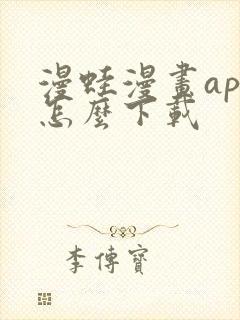 漫蛙漫畫ap
怎麼下載
李傳寶